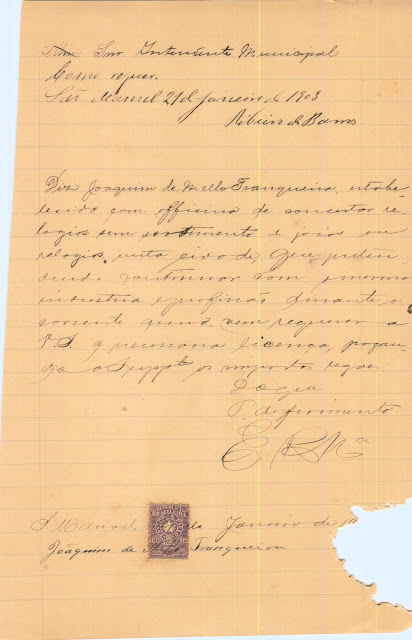 Illm. Snr. Intendente Municipal
Como requer.
São Manuel 21 de Janeiro de 1903
Ribeiro de Barros
Diz Joaquim de Mello Tranqueira, estabe-
lecido com officina de consertar re-
logios sem sortimento e joias ou
relogios, nesta cidade, que preten-
dendo continuar com a mesma
industria e profissão durante o
corrente anno, vem requerer a
V. S. a necessaria licença, pagan-
do o Suppte os impostos legaes.
P. deferimento
E. R. Mce
S. Manuel de Janeiro de
Joaquim de Tranqueira